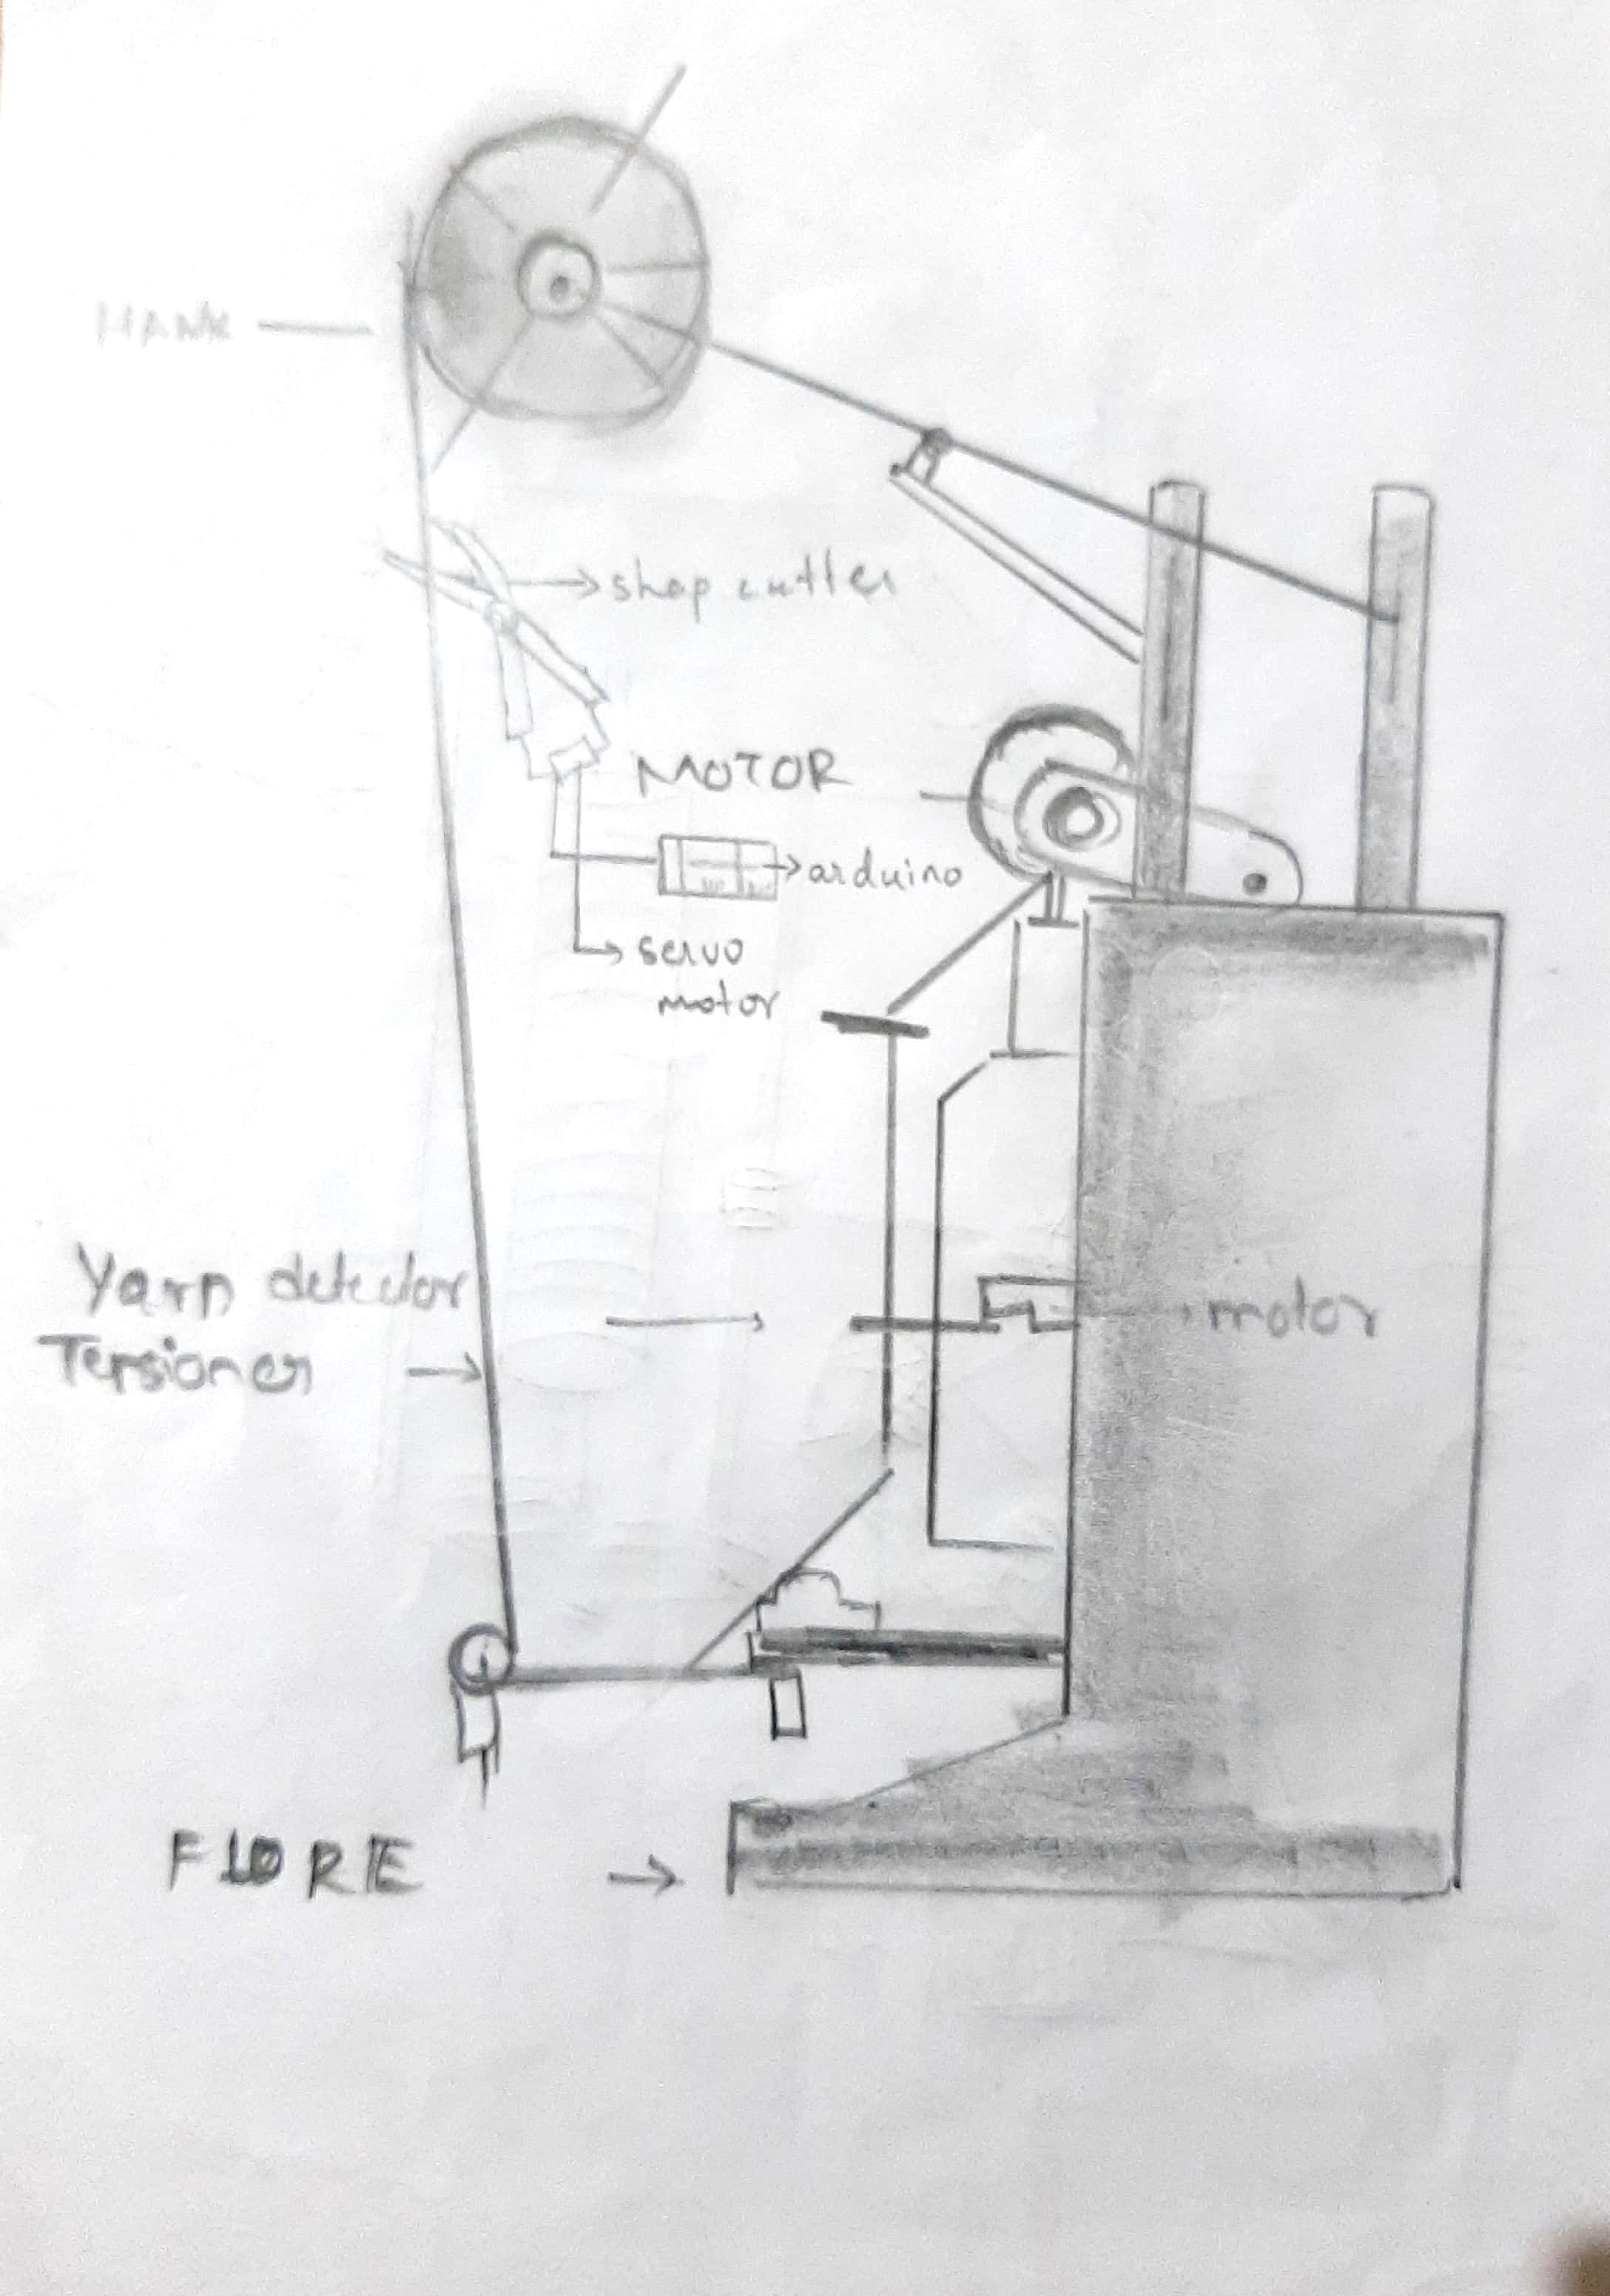 HANK
shap cutter
MOTOR
arduino
servo
motor
Yarn detector
Tensioner
motor
FLORE